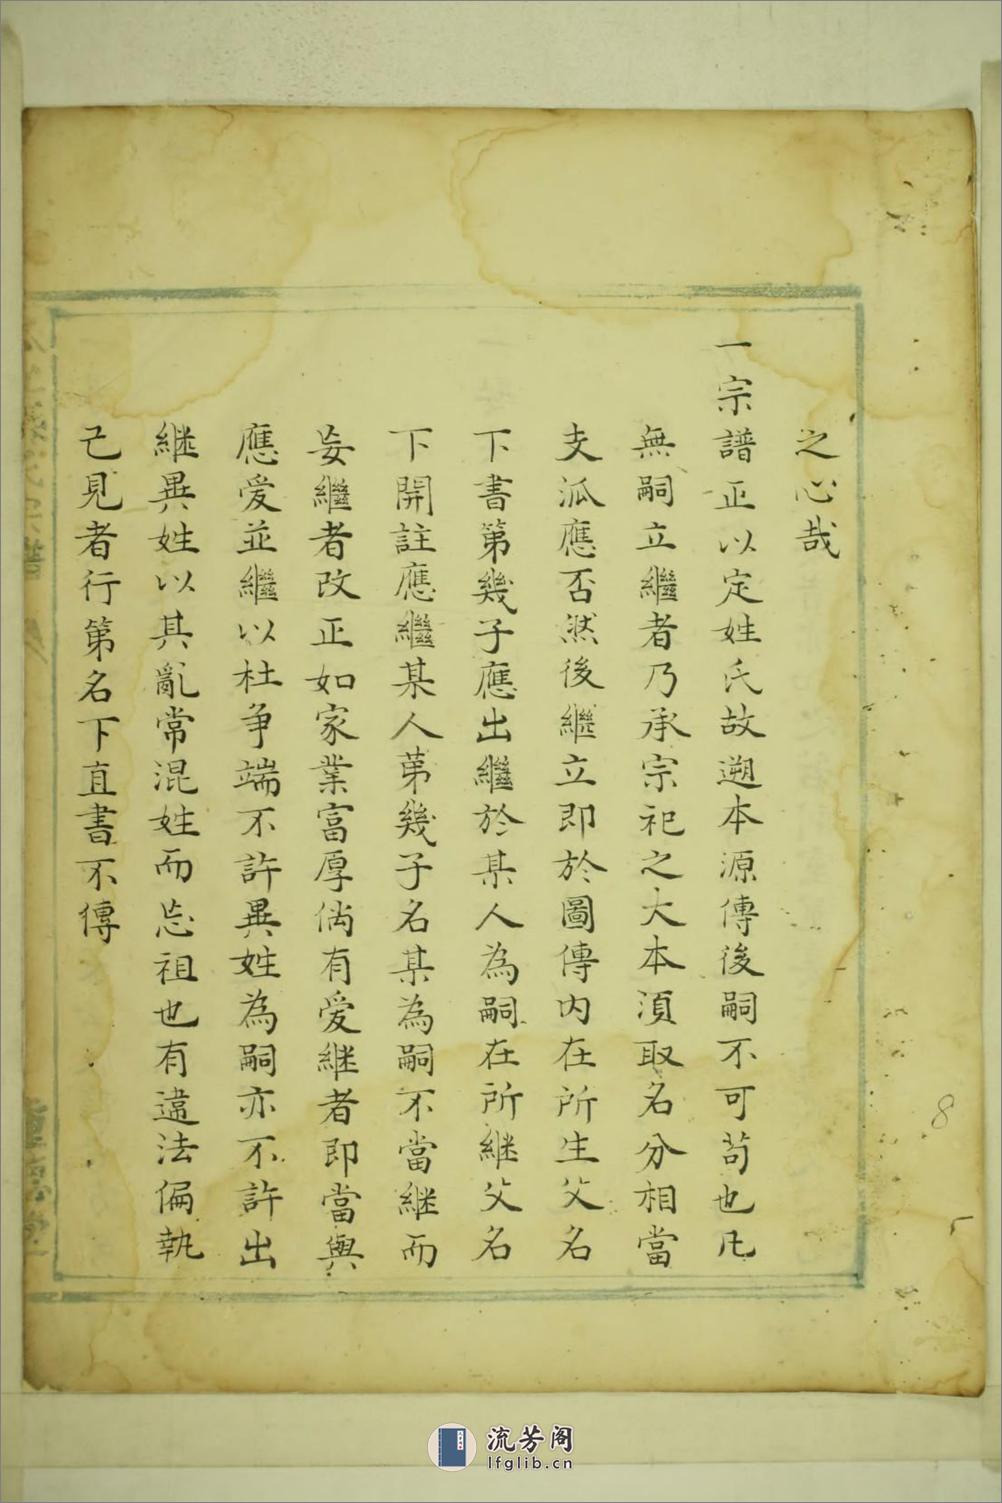 之心哉
一宗譜正以定姓氏故遡本源傳後嗣不可苟也凡
無嗣立繼者乃承宗祀之大本須取名分相當
支派應否然後繼立即於圖傳内在所生父名
下書第幾子應出繼於某人為嗣在所継父名
下開註應繼某人苐幾子名某為嗣不當継而
妄繼者改正如家業富厚倘有愛継者即當與
應爱並繼以杜争端不許異姓為嗣亦不許出
継異姓以其亂常混姓而忘祖也有違法偏執
己見者行第名下直書不傳
8
流芳阁
lfglib.cn